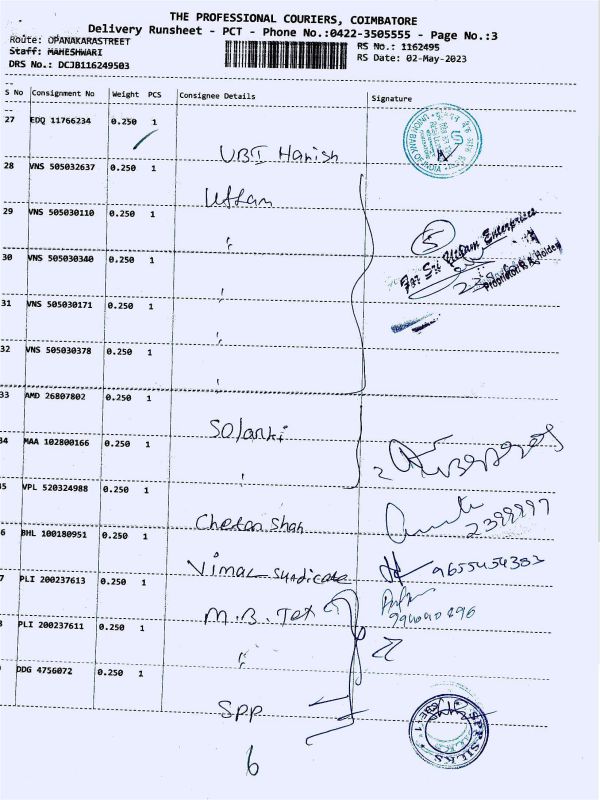 THE PROFESSIONAL COURIERS, COIMBATORE
Delivery Runsheet - PCT - Phone No.:0422-3505555 - Page No.:3
Route: OPANAKARASTREET
RS No.: 1162495
Staff: MAHESHWARI
RS Date: 02-May-2023
DRS No.: DCJB116249503
S No Consignment No Weight PCS Consignee Details Signature
27 EDQ 11766234 0.250 1 UBI Harish
UNION BANK OF INDIA
28 VNS 505032637 0.250 1 Uttam
29 VNS 505030110 0.250 1 "
5
For Sri Uttam Enterprises
30 VNS 505030340 0.250 1 "
Proprietor/P.A. Holder
31 VNS 505030171 0.250 1 "
32 VNS 505030378 0.250 1 "
33 AMD 26807802 0.250 1 Solanki
34 MAA 102800166 0.250 1 "
2
35 VPL 520324988 0.250 1 Chetan Shah
6 BHL 100180951 0.250 1 Vimal Syndicate 9655454383
7 PLI 200237613 0.250 1 M.B. Tex
PLI 200237611 0.250 1 "
DDG 4756072 0.250 1 SPP
SPP SILKS
6